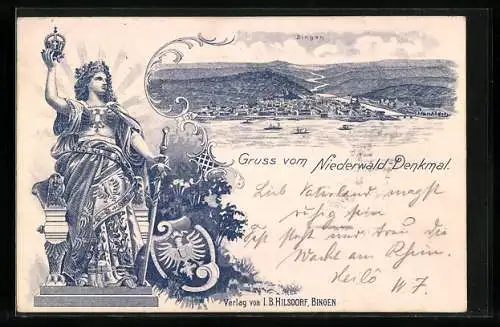 Bingen
Gruss vom Niederwald-Denkmal.
Lieb Vaterland magst
ruhig sein
Fest steht und treu die
Wacht am Rhein.
Heilô W F.
Verlag von I.B. HILSDORF, BINGEN